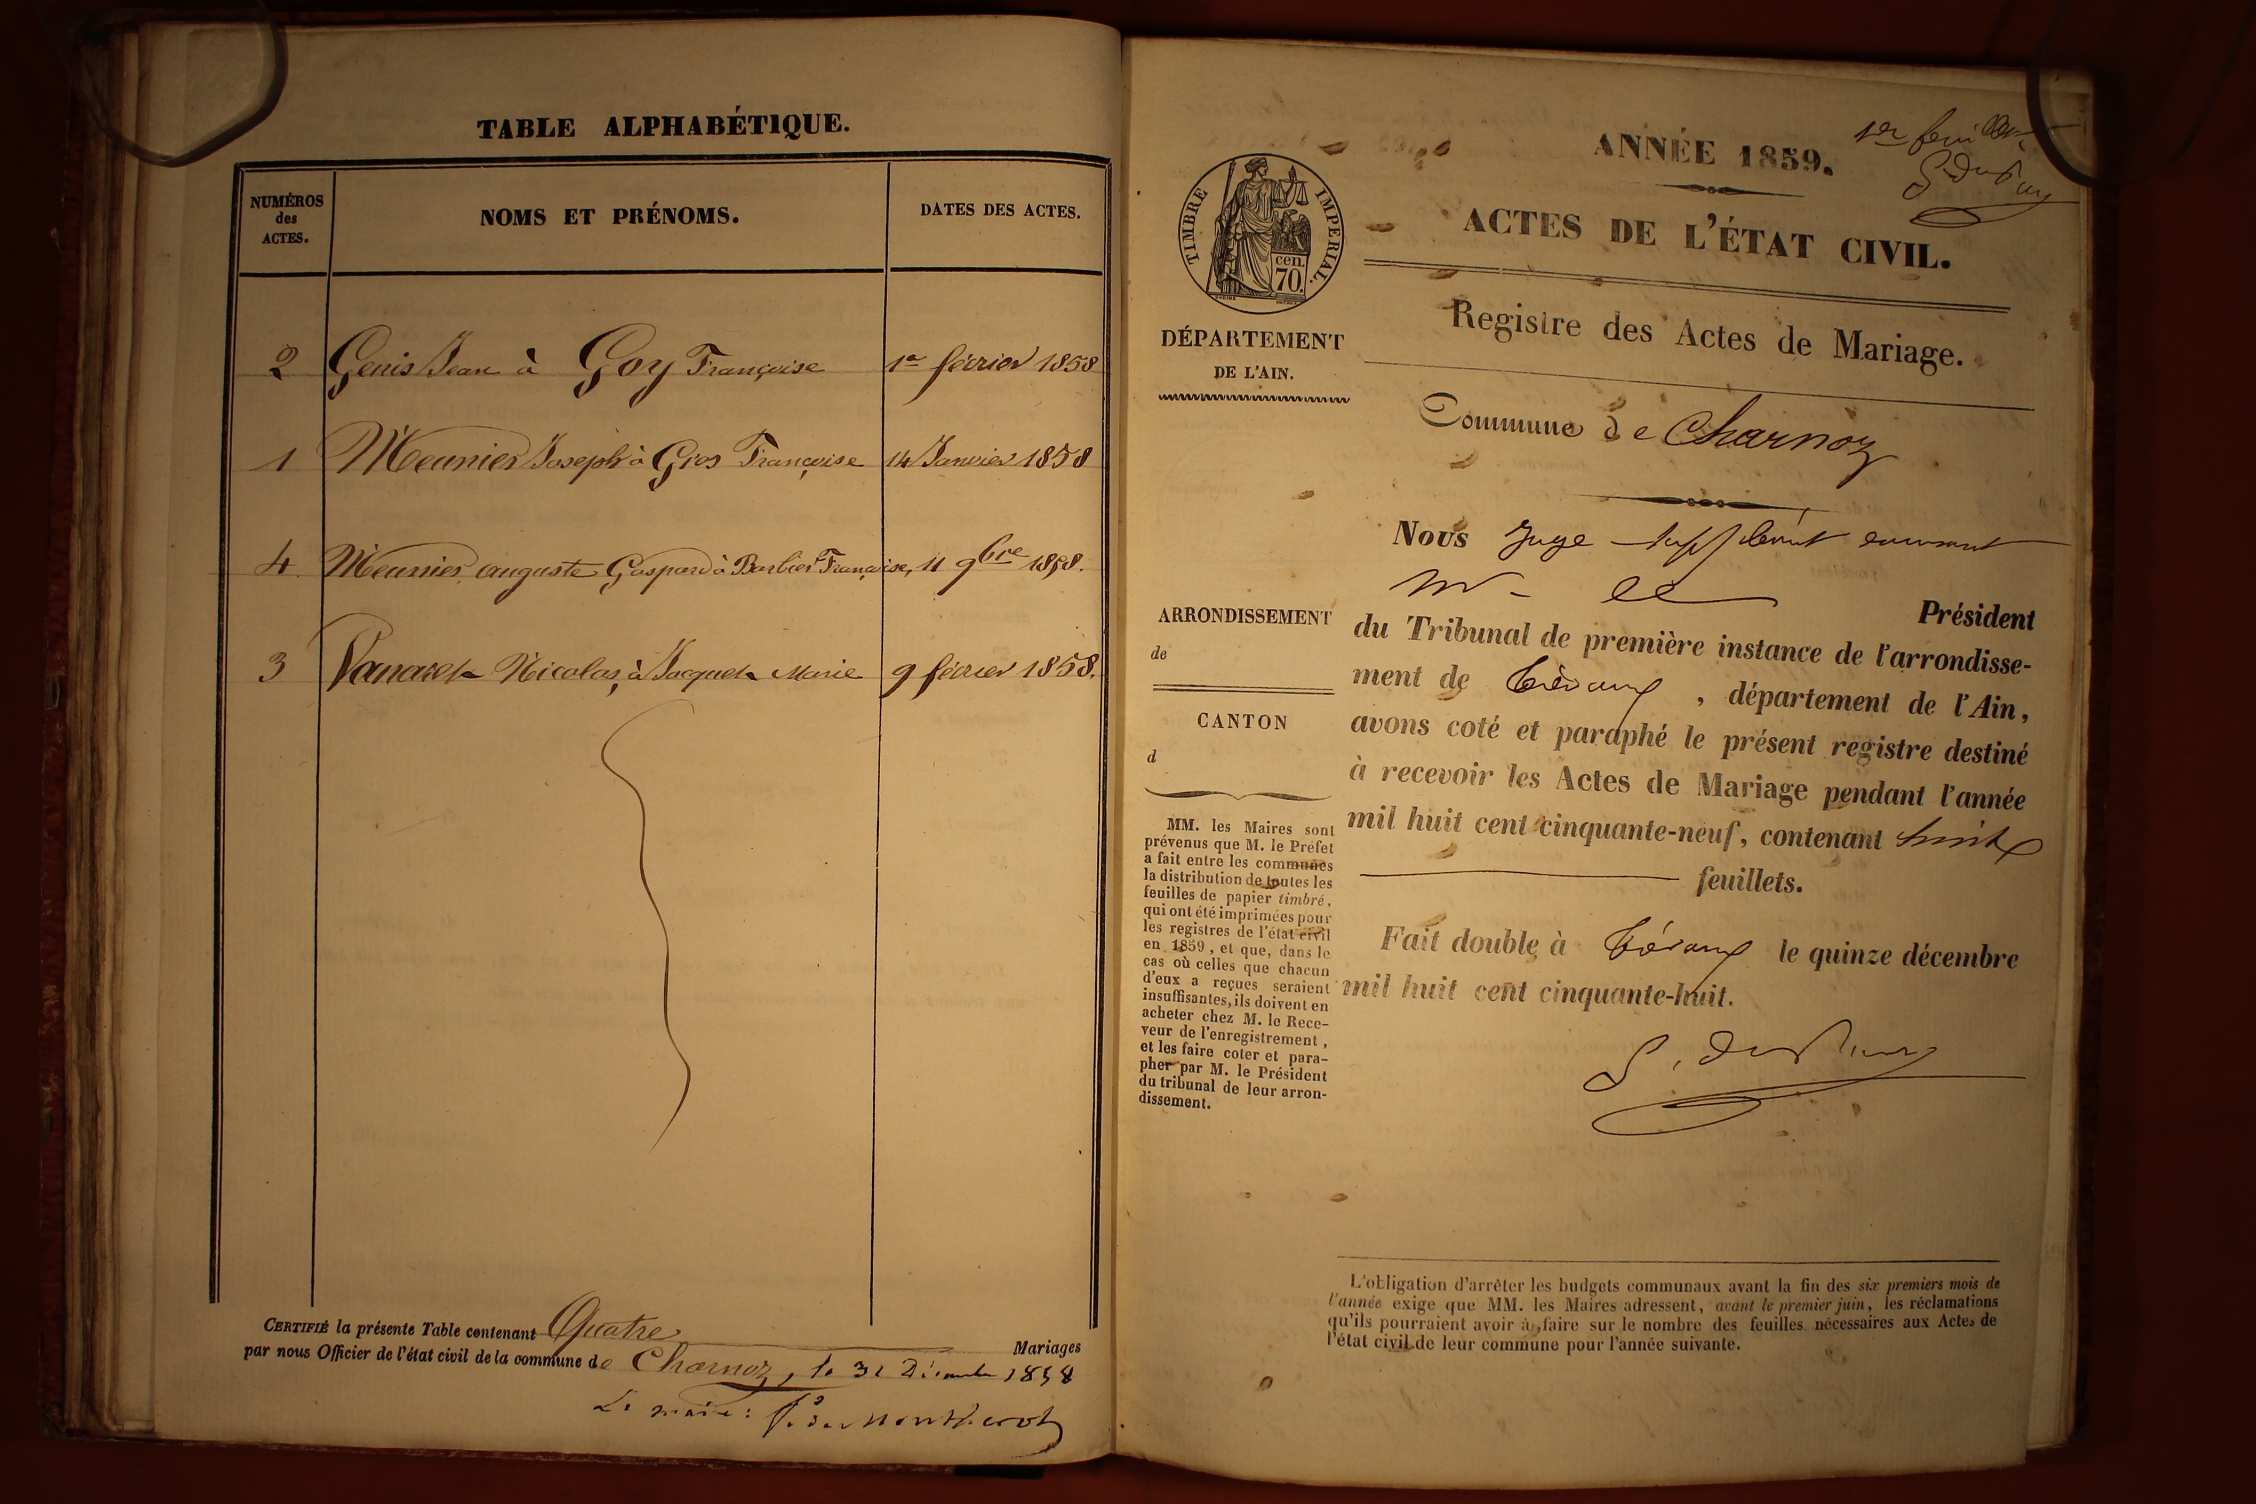 TABLE ALPHABÉTIQUE.
NUMÉROS
des
ACTES.
NOMS ET PRÉNOMS.
DATES DES ACTES.
2 Genis Jean à Goy Françoise 1er février 1858
1 Meunier Joseph à Gros Françoise 14 Janvier 1858
4 Meunier auguste Gaspard à Barbier Françoise, 11 9bre 1858.
3 Nicolas, à Jacquet Marie 9 février 1858.
CERTIFIÉ la présente Table contenant Quatre Mariages
par nous Officier de l'état civil de la commune de Charnoz, le 31 Décembre 1858
Le maire:
1er feuillet
ANNÉE 1859.
ACTES DE L'ÉTAT CIVIL.
TIMBRE IMPERIAL.
cen.
70.
DÉPARTEMENT
DE L'AIN.
Registre des Actes de Mariage.
Commune de Charnoz
Nous Juge suppléant
Mr le Président
du Tribunal de première instance de l'arrondisse-
ment de Trévoux, département de l'Ain,
avons coté et paraphé le présent registre destiné
à recevoir les Actes de Mariage pendant l'année
mil huit cent cinquante-neuf, contenant huit
feuillets.
Fait double à Trévoux le quinze décembre
mil huit cent cinquante-huit.
ARRONDISSEMENT
de
CANTON
d
MM. les Maires sont
prévenus que M. le Préfet
a fait entre les communes
la distribution de toutes les
feuilles de papier timbré,
qui ont été imprimées pour
les registres de l'état civil
en 1859, et que, dans le
cas où celles que chacun
d'eux a reçues seraient
insuffisantes, ils doivent en
acheter chez M. le Rece-
veur de l'enregistrement,
et les faire coter et para-
pher par M. le Président
du tribunal de leur arron-
dissement.
L'obligation d'arrêter les budgets communaux avant la fin des six premiers mois de
l'année exige que MM. les Maires adressent, avant le premier juin, les réclamations
qu'ils pourraient avoir à faire sur le nombre des feuilles nécessaires aux Actes de
l'état civil de leur commune pour l'année suivante.